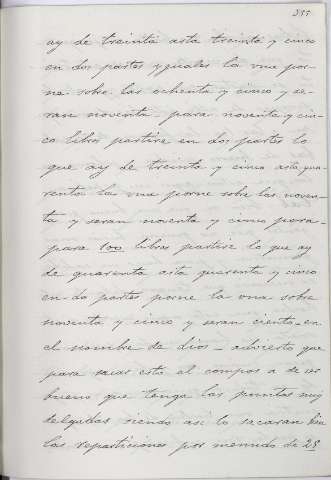 255
ay de treinta asta treinta y cinco
en dos partes yguales la una por-
na sobre las ochenta y cinco y se-
ran noventa - para noventa y cin-
co libras partire en dos partes lo
que ay de treinta y cinco asta qua-
renta la una porne sobre las noven-
ta y seran noventa y cinco para -
para 100 libras partire lo que ay
de quarenta asta quarenta y cinco
en do partes porne la una sobre
noventa y cinco y seran ciento - en
el nombre de dios - advierto que
para sacar esto el compas a de ser
bueno que tenga las puntas muy
delgadas siendo asi lo sacaran bien
las reparticiones por menudo de 25